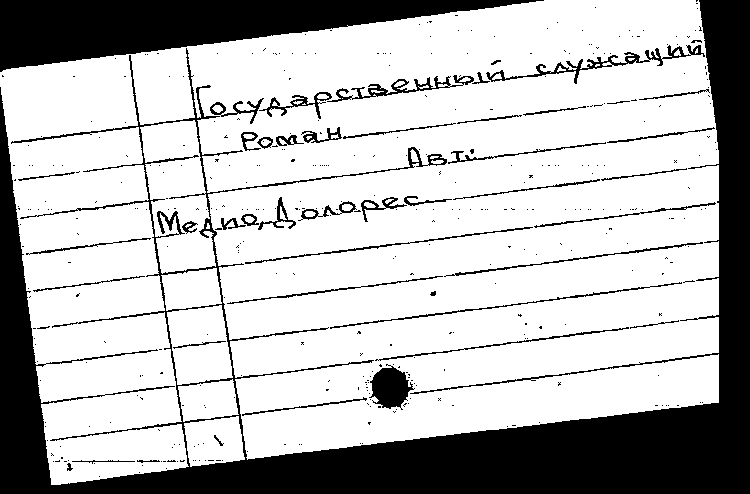 Государственный служащий
Роман
Авт.:
Медио, Долорес